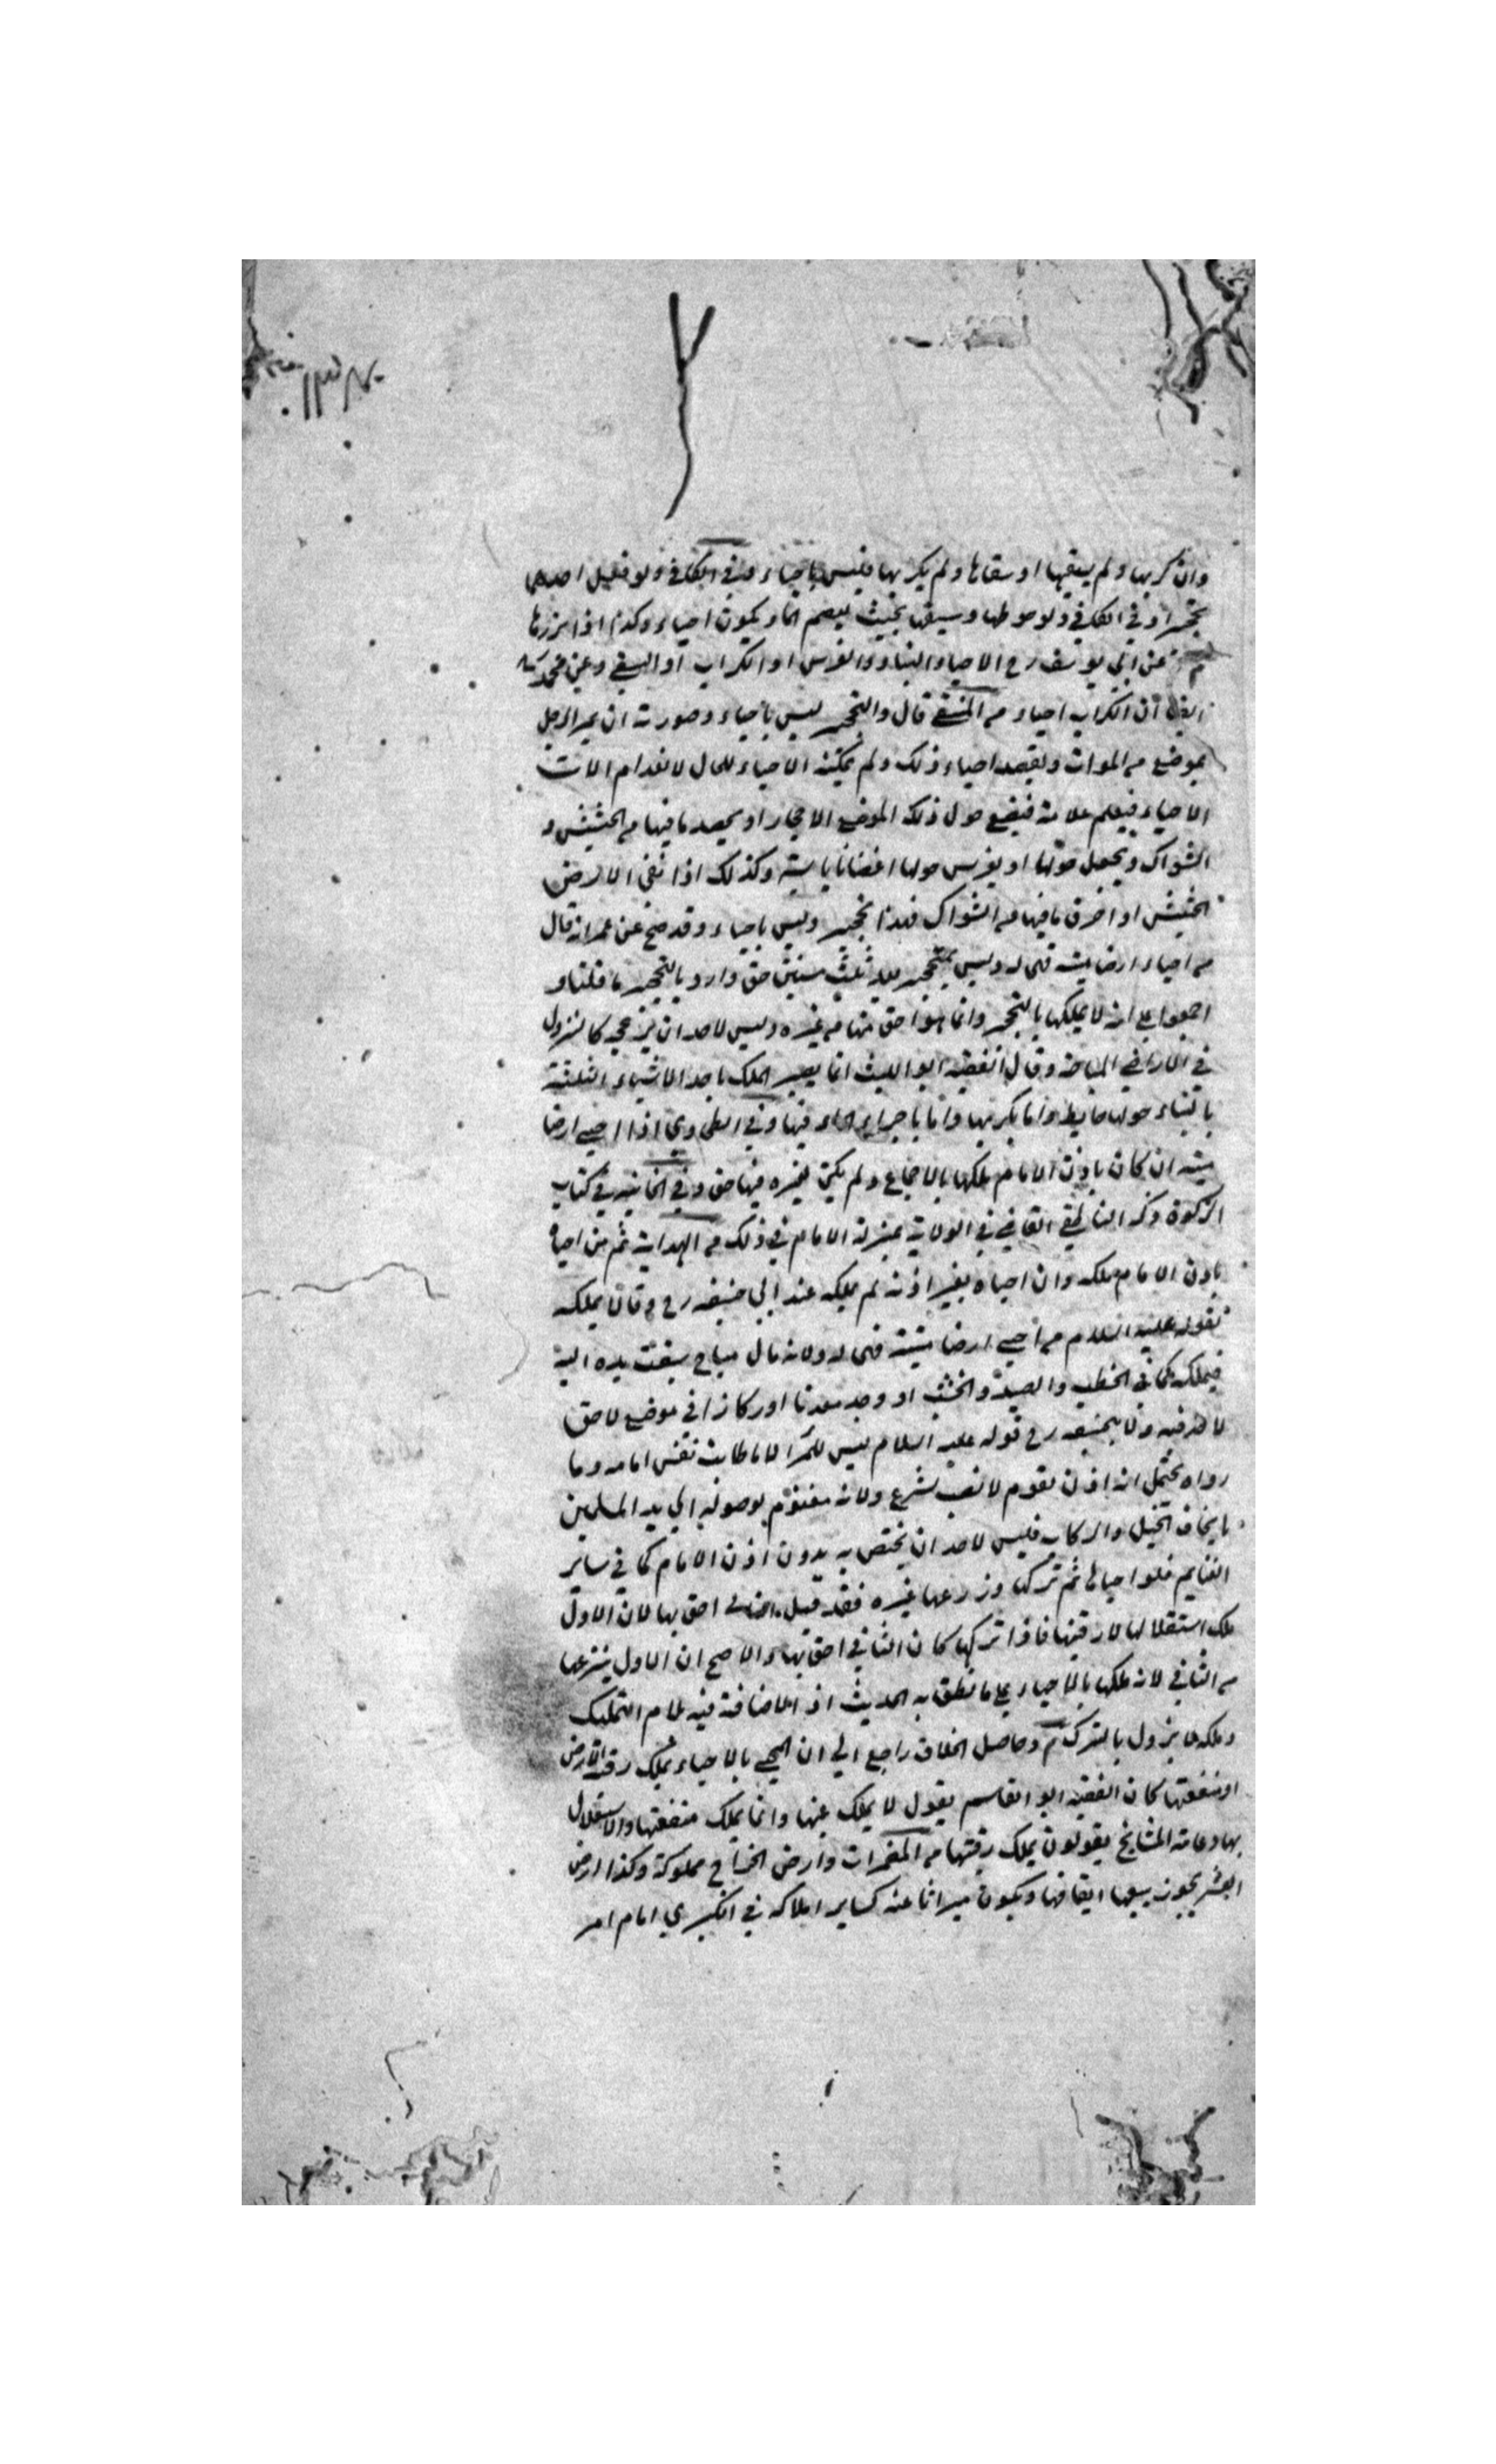 وان كربها ولم يسقها او سقاها ولم يكربها فليس باحياء وفي الكافي ولو فعل احدهما
تحجير او في الكافي ولو حوطها وسنمها بحيث يعصم الماء يكون احياء وكذا اذا بزرها
م عن ابي يوسف رح الاحياء البناء والغرس او الكراب او السقي وعن محمد
ايضا ان الكراب احياء م المنتقى قال والتحجير ليس باحياء وصورته ان يمر الرجل
بموضع من الموات ويقصد احياء ذلك ولم يمكنه الاحياء للحال لانعدام الات
الاحياء فيعلم علامة فيضع حول ذلك الموضع الاحجار او يحصد ما فيها من الحشيش و
الشواك ويجعل حولها او يغرس حولها اغصانا يابسة وكذلك اذا نقى الارض
الحشيش او احرق ما فيها من الشواك فهذا تحجير وليس باحياء وقد صح عن عمر انه قال
من احياء ارضا ميتة فهى له وليس لمتحجر بعد ثلث سنين حق واراد بالتحجير ما قلنا و
اجمعوا على انه لا يملكها بالتحجر وانما هو احق منها من غيره وليس لاحد ان يزعجه كالنزول
في الاراضي المباحة وقال الفقيه ابو الليث انما يصير الملك باحد الاشياء الثلثة
بالبناء حولها حايط واما بكربها واما باجراء الماء فيها وفي الطحاوي اذا احيى ارضا
ميتة ان كان باذن الامام ملكها بالاجماع ولم يكن لغيره فيها حق وفي الخانية في كتاب
الزكوة ذكر الناطفي القاضي في الولاية بمنزلة الامام في ذلك م الهداية ثم من احياه
باذن الامام ملكه وان احياه بغير اذنه لم يملكه عند ابي حنيفه رح وقالا يملكه
لقوله عليه السلام من احيى ارضا ميتة فهى له ولانه مال مباح سبقت يده اليه
فيملكه كما في الحطب والصيد والخشب او وجد معدنا او ركازا في موضع لا حق
لاحد فيه ولابيحنيفه رح قوله عليه السلام ليس للمرأ الا ما طابت نفس امامه وما
رواه يحتمل انه اذن لقوم لا نصب لشرع ولانه مغنوم لوصوله الى يد المسلمين
بايجاف الخيل والركاب فليس لاحد ان يختص به بدون اذن الامام كما في ساير
الغنايم فلو احياها ثم تركها وزرعها غيره فقد قيل الثاني احق بها لان الاول
ملك استغلالها لا رقبتها فاذا تركها كان الثاني احق بها والاصح ان الاول ينزعها
من الثاني لانه ملكها بالاحياء على ما نطق به الحديث اذ الاضافة فيه للام التمليك
وملكه لا يزول بالترك م وحاصل الخلاف راجع الى ان المحيي بالاحياء يملك رقبة الارض
او منفعتها كان الفقيه ابو القاسم يقول لا يملك عينها وانما يملك منفعتها والاستغلال
بها وعامة المشايخ يقولون يملك رقبتها م المضمرات وارض الخراج مملوكة وكذا ارض
العشر يجوز بيعها ايقافها ويكون ميراثا عنه كساير املاكه في الكبرى امام امر